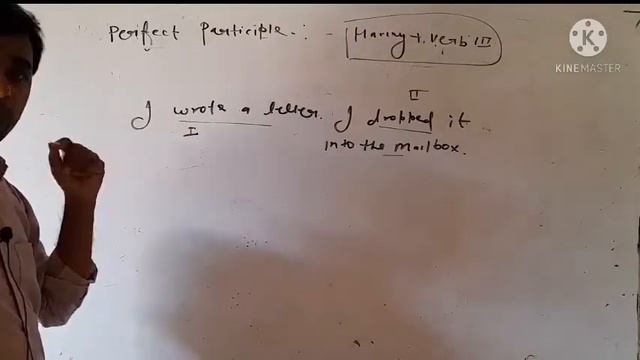 Perfect Participle :- Having + Verb III
KINEMASTER
II
I wrote a letter. I dropped it
I
into the mailbox.